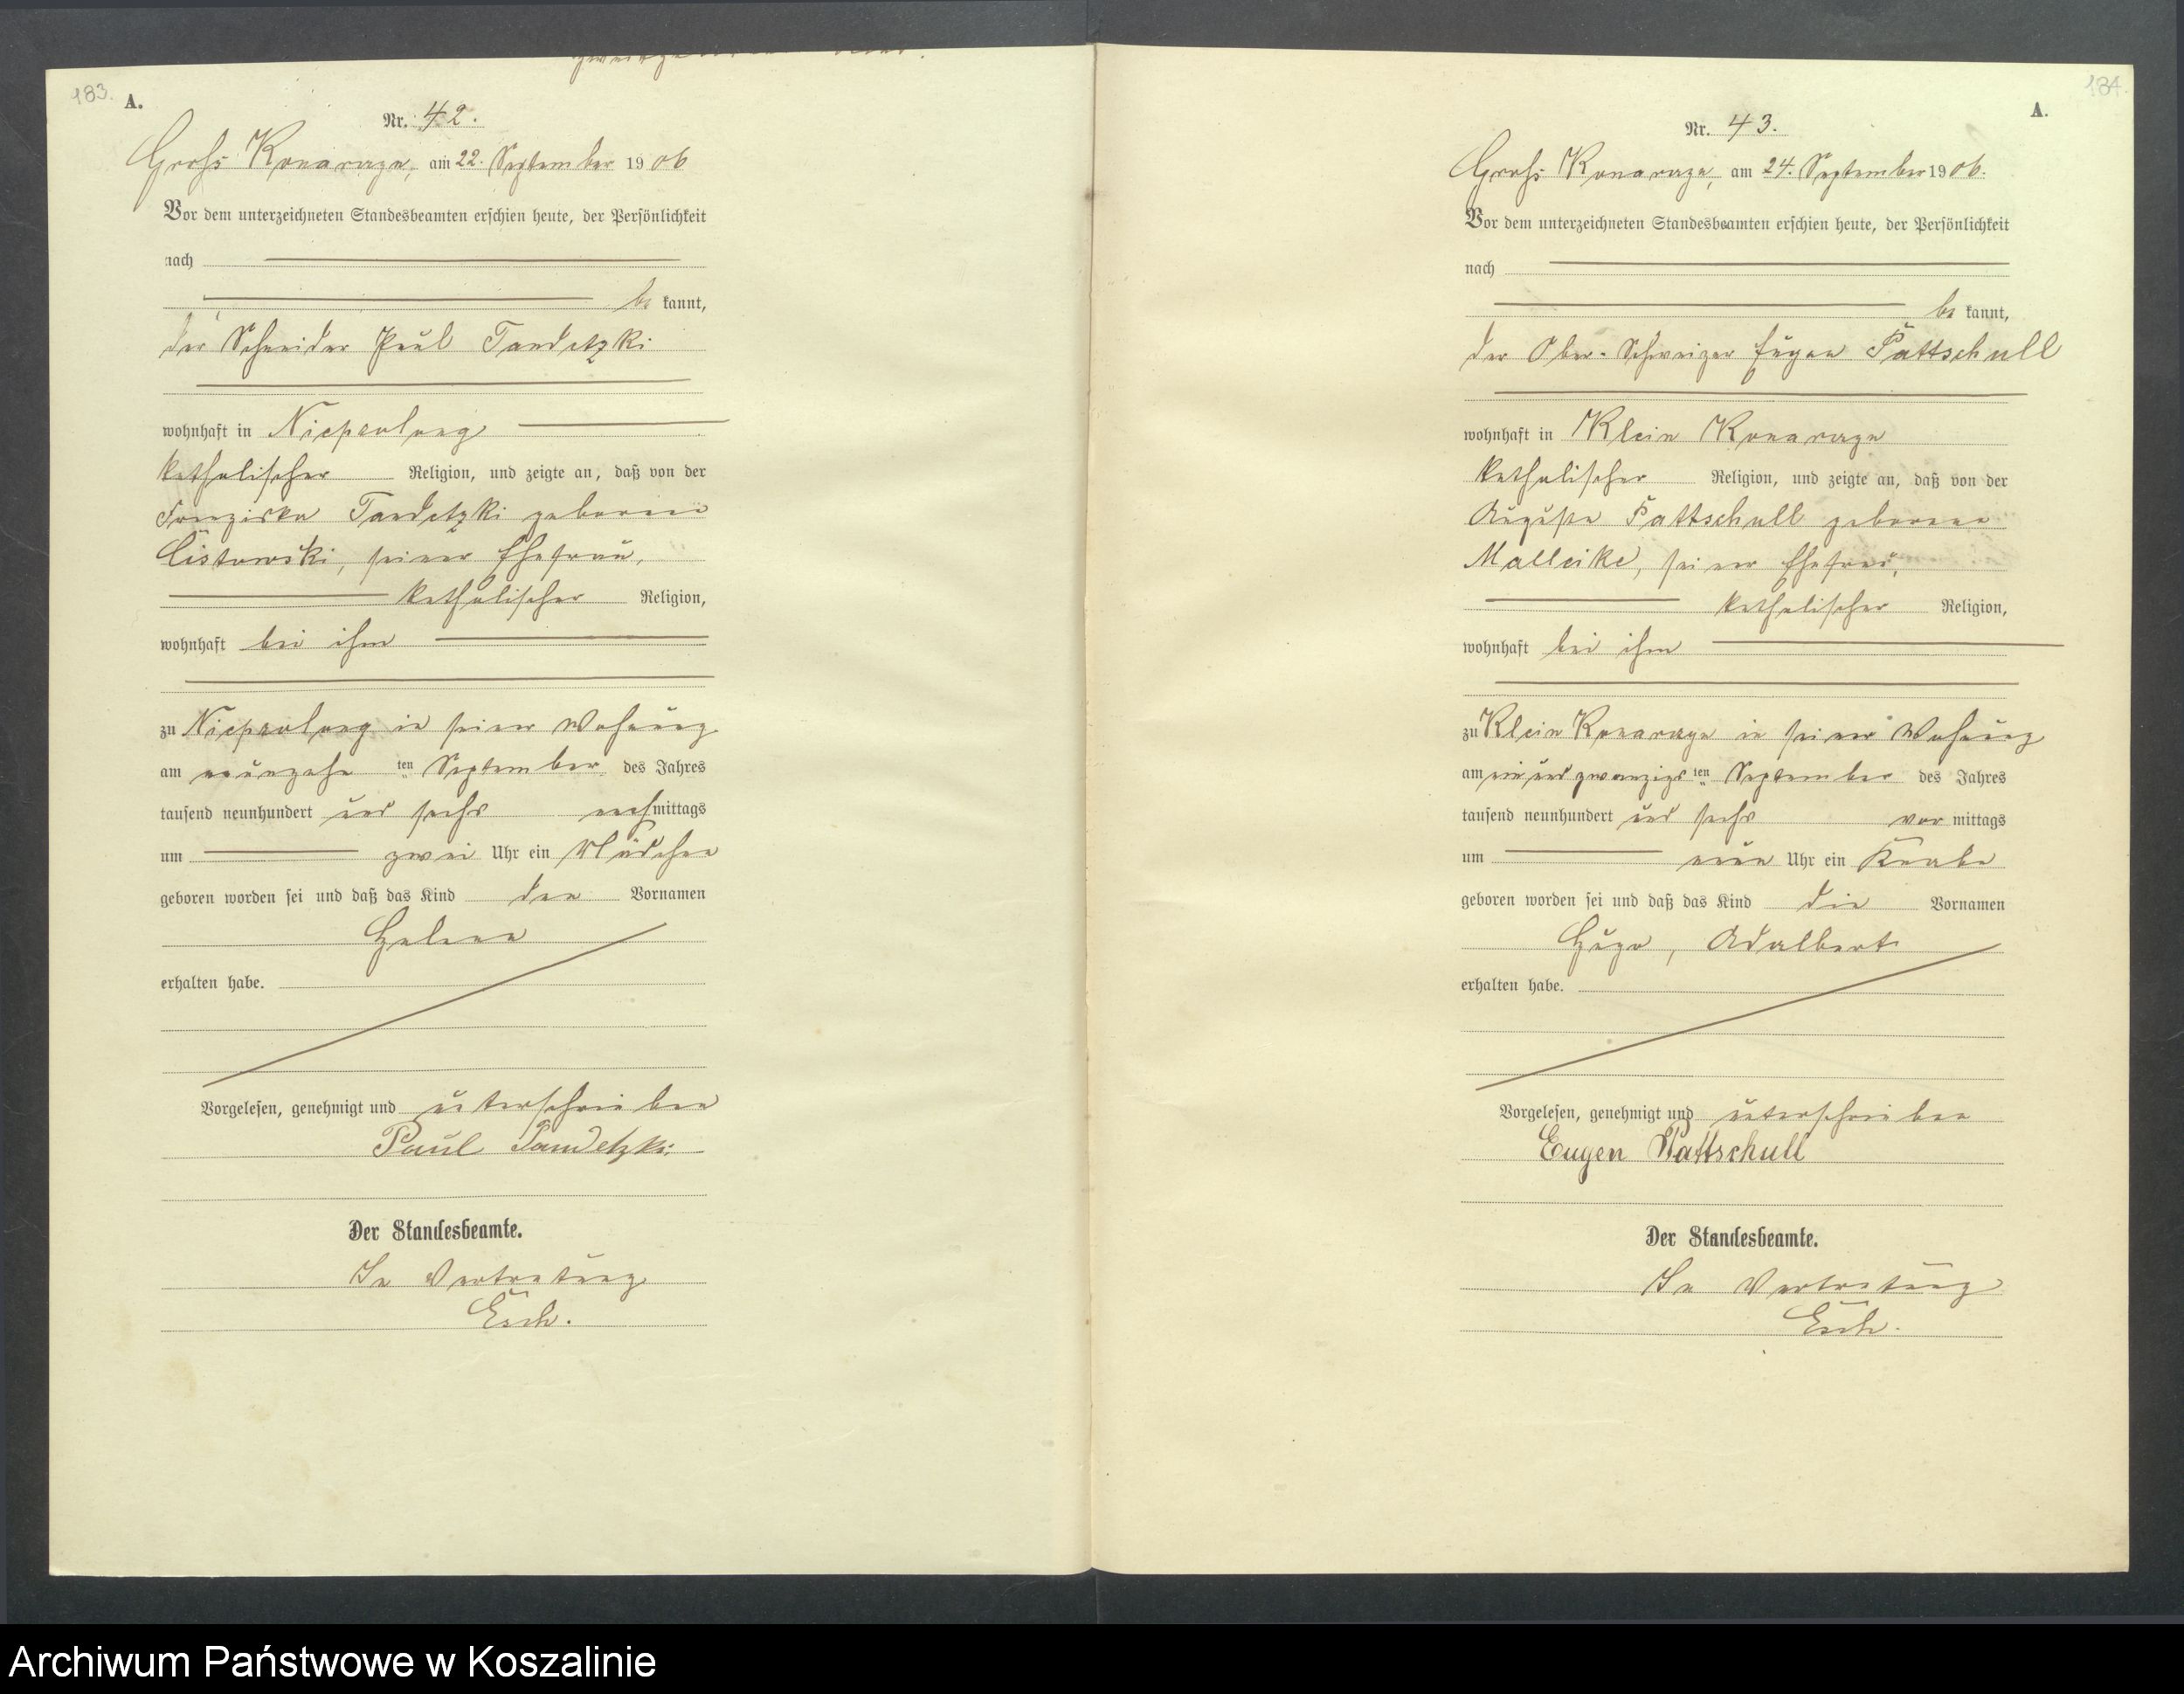 183.
A.
Nr. 42.
Gross Konarczyn, am 22. September 1906
Vor dem unterzeichneten Standesbeamten erschien heute, der Persönlichkeit
nach
be kannt,
der Schneider Paul Tandetzki
wohnhaft in Niepzolong
katholischer Religion, und zeigte an, daß von der
Franziska Tandetzki geborene
Cistowski, seiner Ehefrau,
katholischer Religion,
wohnhaft bei ihm
zu Niepzolong in seiner Wohnung
am neunzehn ten September des Jahres
tausend neunhundert und sechs nachmittags
um zwei Uhr ein Mädchen
geboren worden sei und daß das Kind den Vornamen
Helene
erhalten habe.
Vorgelesen, genehmigt und unterschrieben
Paul Tandetzki.
Der Standesbeamte.
In Vertretung
Esch.
184.
A.
Nr. 43.
Gross Konarczyn, am 24. September 1906.
Vor dem unterzeichneten Standesbeamten erschien heute, der Persönlichkeit
nach
be kannt,
der Ober-Schweizer Eugen Pattschull
wohnhaft in Klein Konarczyn
katholischer Religion, und zeigte an, daß von der
Auguste Pattschull geborene
Malleike, seiner Ehefrau,
katholischer Religion,
wohnhaft bei ihm
zu Klein Konarczyn in seiner Wohnung
am ein und zwanzigsten September des Jahres
tausend neunhundert und sechs vor mittags
um neun Uhr ein Knabe
geboren worden sei und daß das Kind die Vornamen
Hugo, Adalbert
erhalten habe.
Vorgelesen, genehmigt und unterschrieben
Eugen Pattschull
Der Standesbeamte.
In Vertretung
Esch.
Archiwum Państwowe w Koszalinie